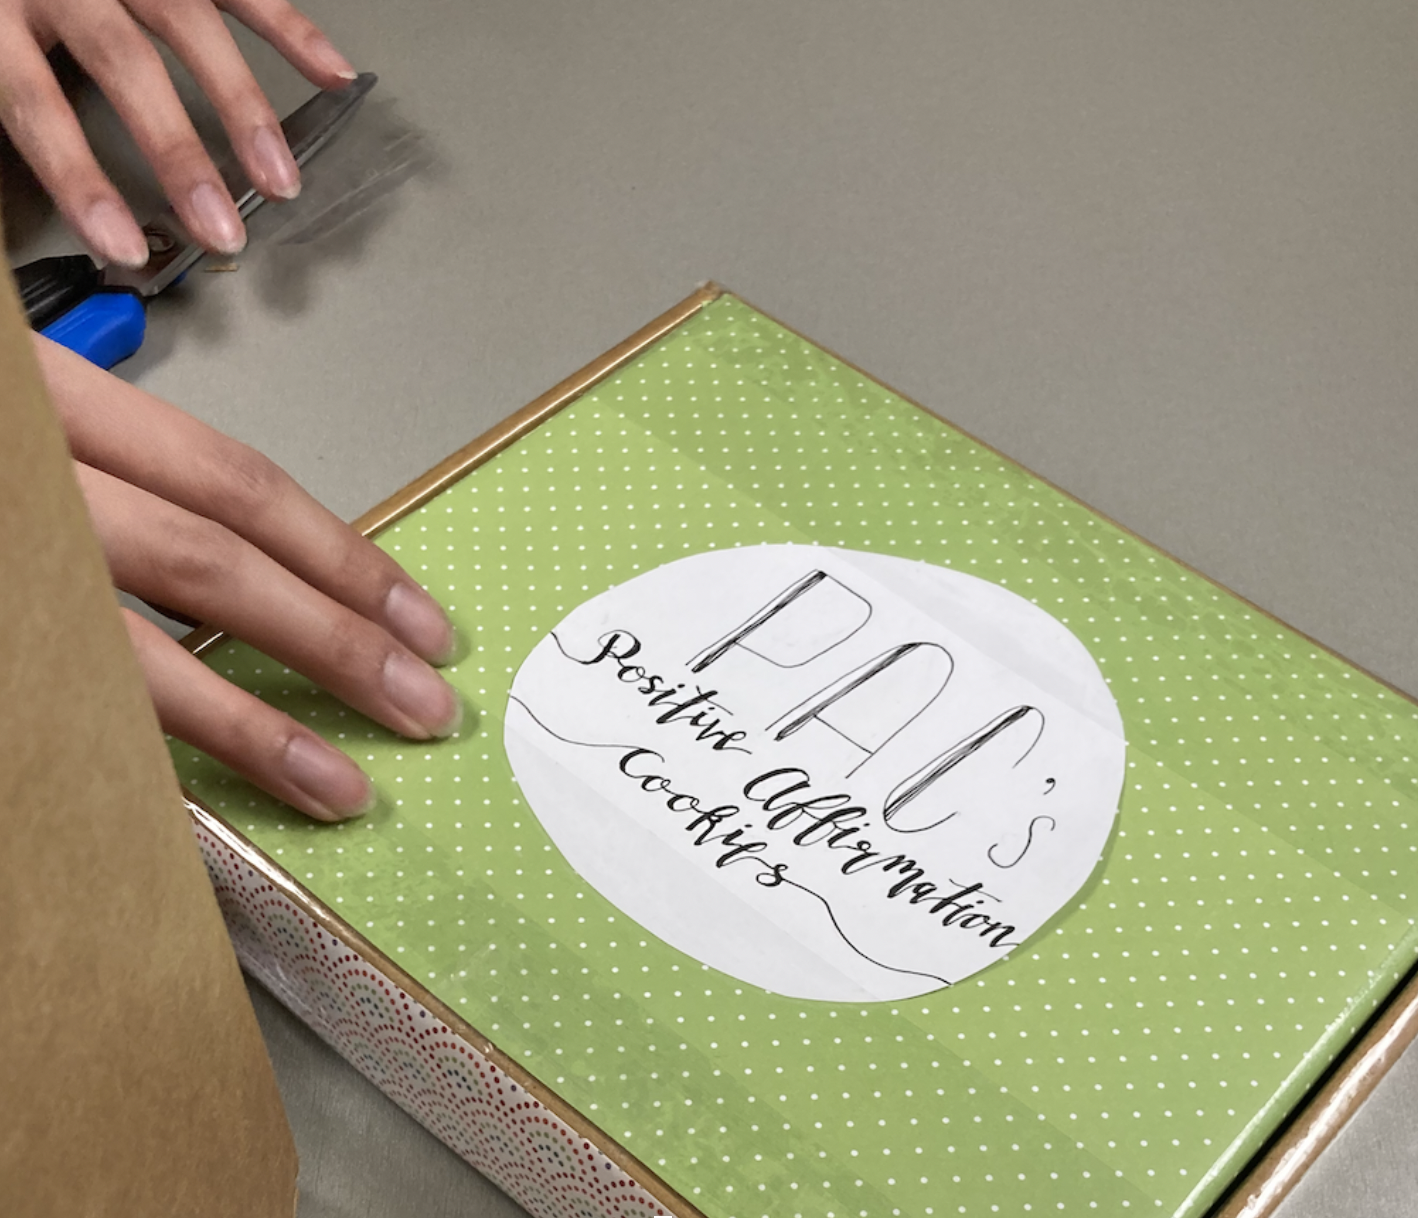 PAC's
Positive Affirmation
Cookies